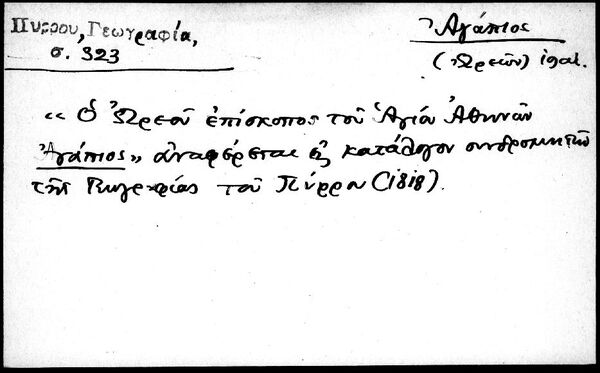 Πύρρου, Γεωγραφία,
σ. 323
Ἀγάπιος
(Ὠρεῶν)
« Ὁ Ὠρεοῦ ἐπίσκοπος τοῦ Ἁγίου Ἀθηνῶν
Ἀγάπιος» ἀναφέρεται εἰς κατάλογον συνδρομητῶν
τῆς Γεωγραφίας τοῦ Πύρρου (1818).